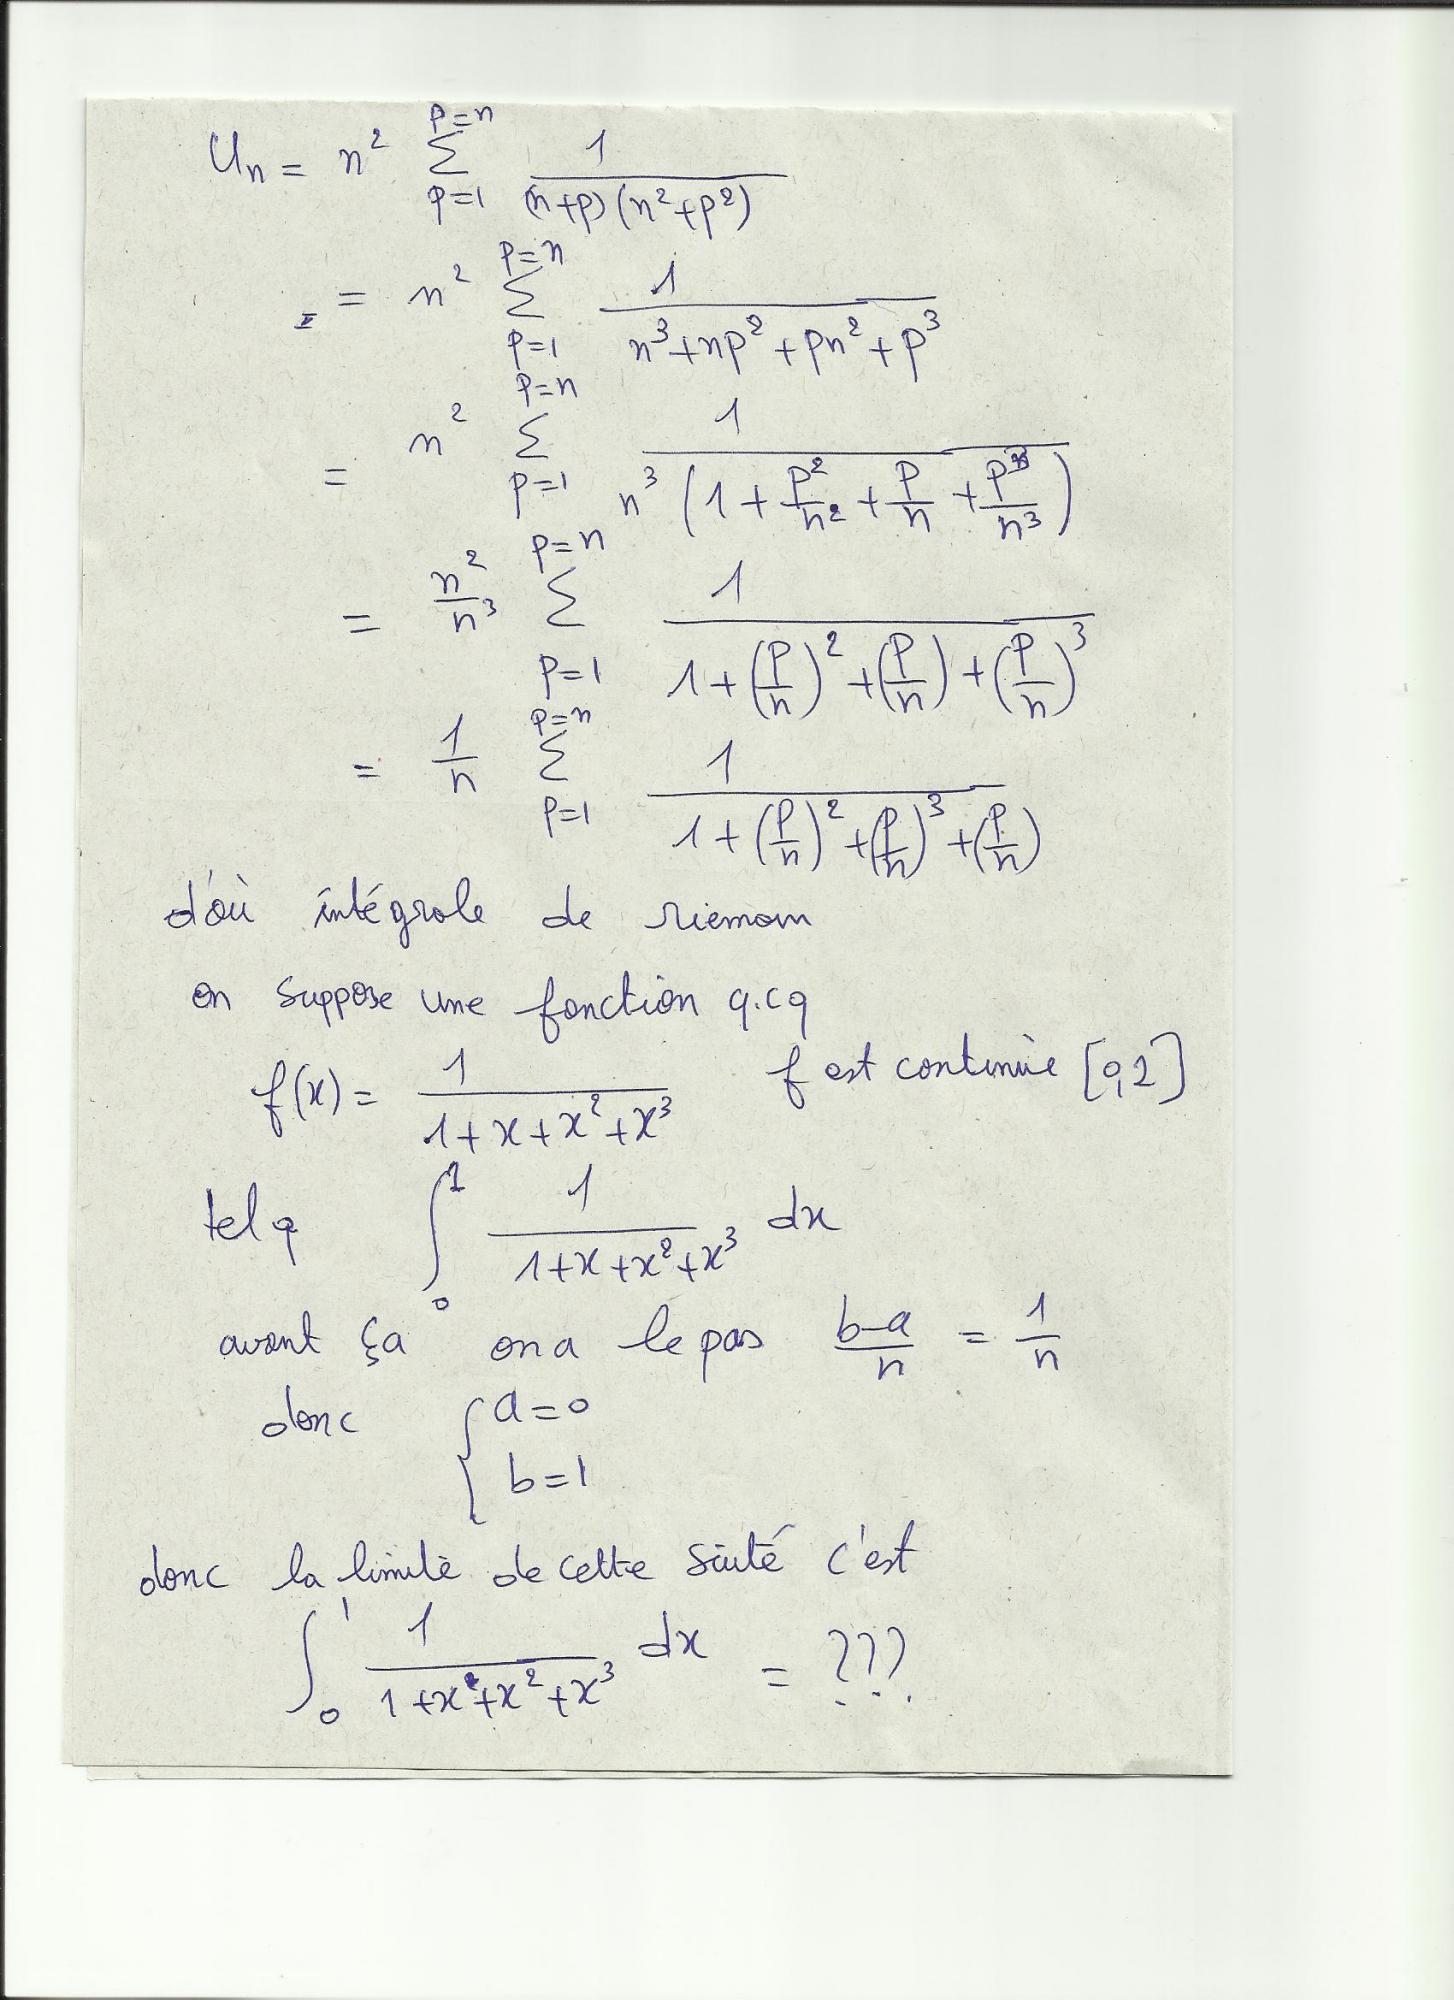 Un = n² Σ_{p=1}^{p=n} 1/((n+p)(n²+p²))
= n² Σ_{p=1}^{p=n} 1/(n³+np²+pn²+p³)
= n² Σ_{p=1}^{p=n} 1/(n³(1+p²/n²+p/n+p³/n³))
= n²/n³ Σ_{p=1}^{p=n} 1/(1+(p/n)²+(p/n)+(p/n)³)
= 1/n Σ_{p=1}^{p=n} 1/(1+(p/n)²+(p/n)³+(p/n))
d'où intégrale de riemam
on suppose une fonction q.cq
f(x) = 1/(1+x+x²+x³) f est continùe [0,1]
tel q ∫_0^1 1/(1+x+x²+x³) dx
avant ça on a le pas (b-a)/n = 1/n
donc { a=0
b=1
donc la limitè de cette siuté c'est
∫_0^1 1/(1+x+x²+x³) dx = ???